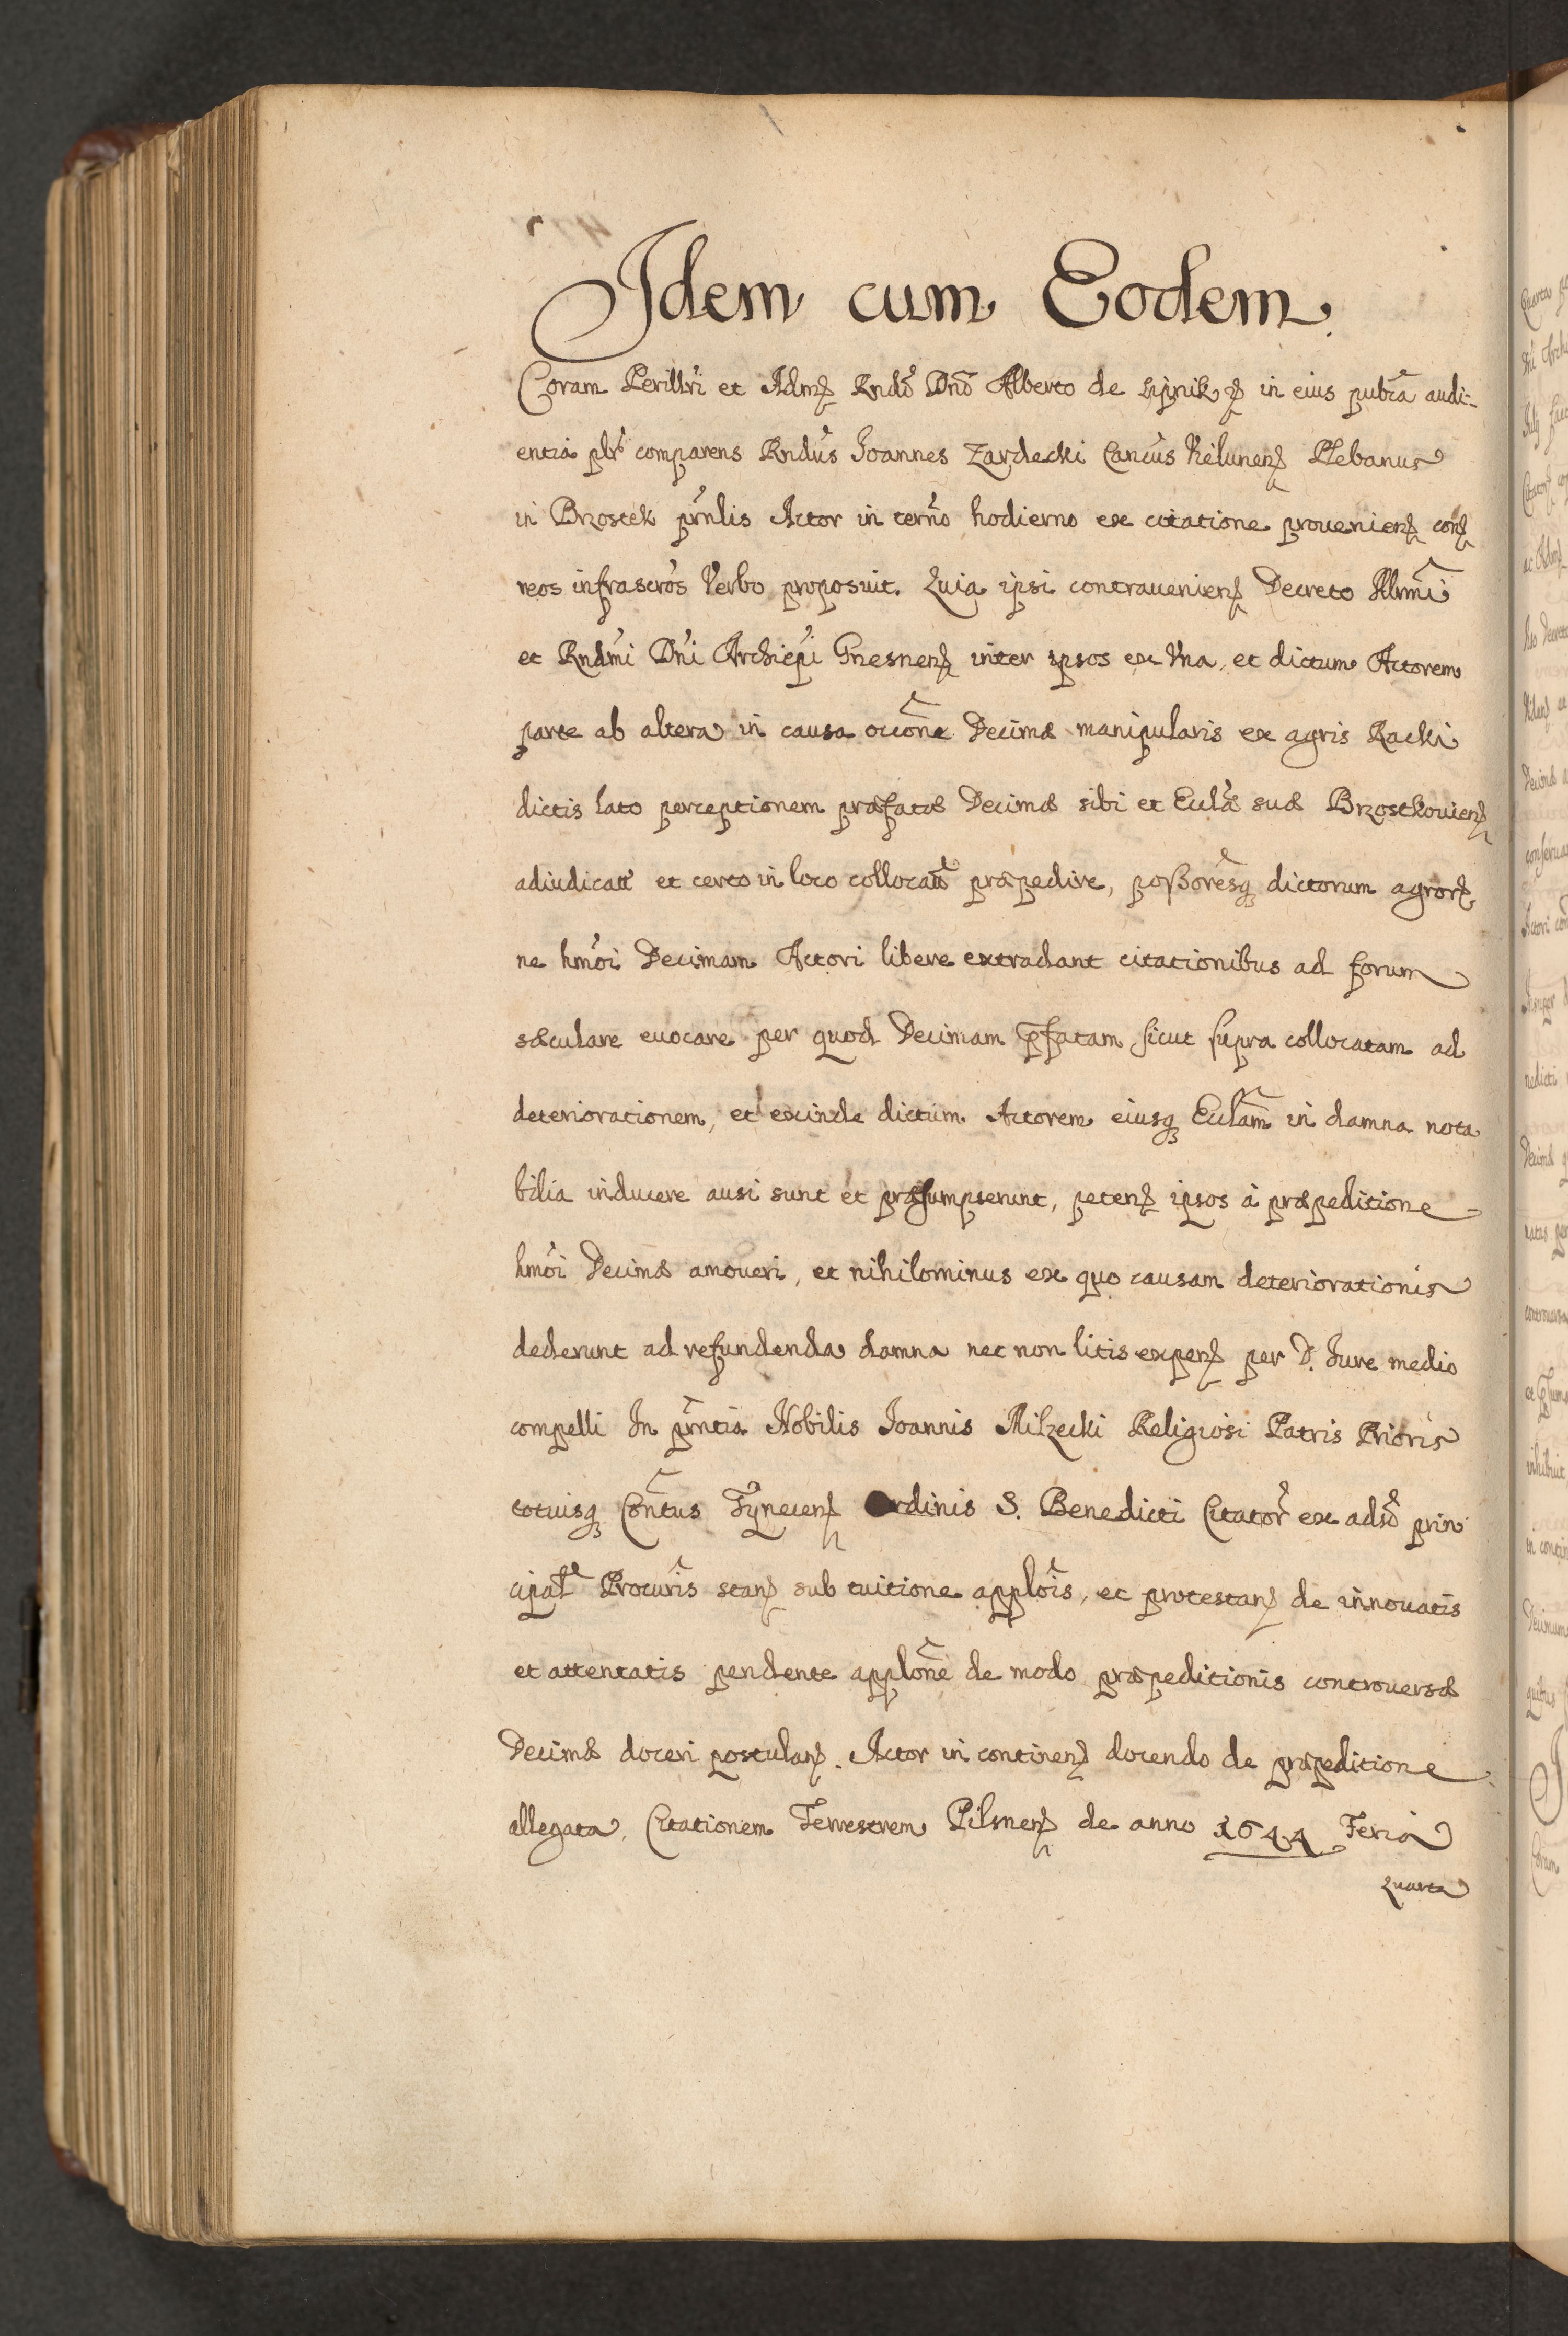 Idem cum Eodem.
Coram Perillri et Admꝫ Rndo Dno Alberto de Lipnik ꝫ in eius publca audi-
entia plr comparens Rndus Joannes Zardecki Cancus Vielunenꝫ Plebanus
in Brzostek prnlis Actor in termo hodierno ex citatione prouenienꝫ conꝫ
reos infrascros Verbo proposuit. Quia ipsi contrauenienꝫ Decreto Illrmi
et Rndmi Dni Archiepi Gnesnenꝫ inter ipsos ex Vna, et dictum Actorem
parte ab altera in causa occone Decimæ manipularis ex agris Racki
dictis lato perceptionem præfatæ Decimæ sibi et Eccla suæ Brzostkouienꝫ
adiudicatæ et certo in loco collocatæ præpedire, poßoresqꝫ dictorum agrorꝫ
ne hmoi Decimam Actori libere extradant citationibus ad forum
sæculare euocare per quod Decimam p̄fatam sicut supra collocatam ad
deteriorationem, et exinde dictum Actorem eiusqꝫ Ecclam in damna nota
bilia inducere ausi sunt et præsumpserunt, petenꝫ ipsos à præpeditione
hmoi Decimæ amoueri, et nihilominus ex quo causam deteriorationis
dederunt ad refundenda damna nec non litis expenꝫ per D. Jure medio
compelli In prntia Nobilis Joannis Milzecki Religiosi Patris Prioris
totiusqꝫ Conntus Tynecenꝫ Ordinis S. Benedicti Citator ex adso prin
cipal Procuris stanꝫ sub tuitione applois, et protestanꝫ de innouatis
et attentatis pendente applone de modo præpeditionis controuersæ
Decimæ doceri postulanꝫ. Actor in continenꝫ docendo de præpeditione
allegata, Citationem Terrestrem Pilsnenꝫ de anno 1644 Feria
Quarta